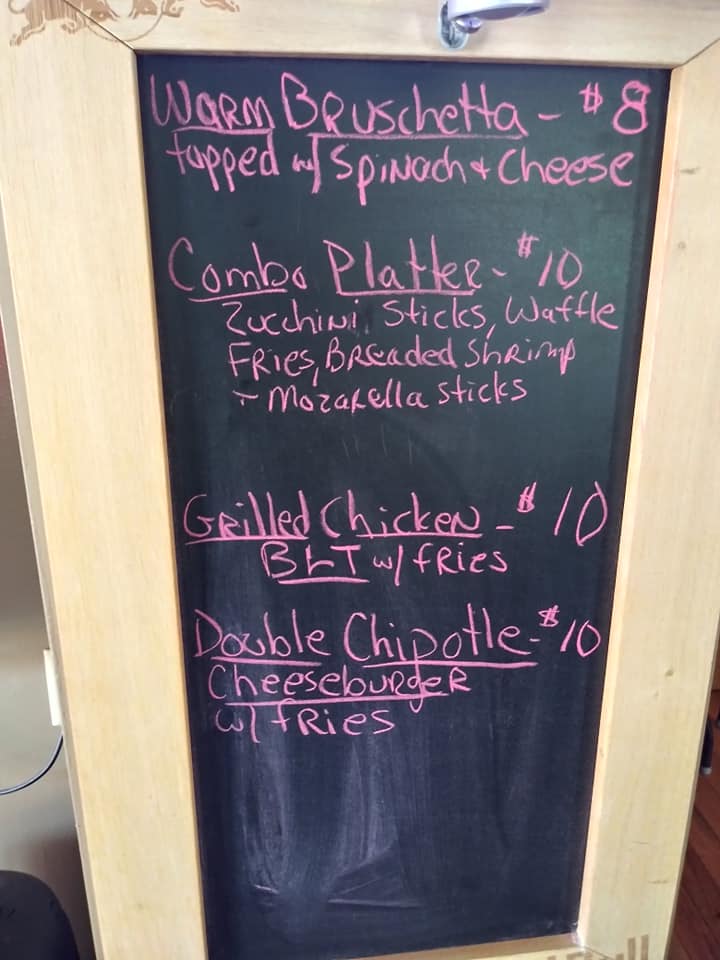 Warm Bruschetta - $8
topped w/ Spinach + Cheese
Combo Platter - $10
Zucchini Sticks, Waffle
Fries, Breaded Shrimp
+ Mozarella Sticks
Grilled Chicken - $10
BLT w/ fries
Double Chipotle - $10
Cheeseburger
w/ fries